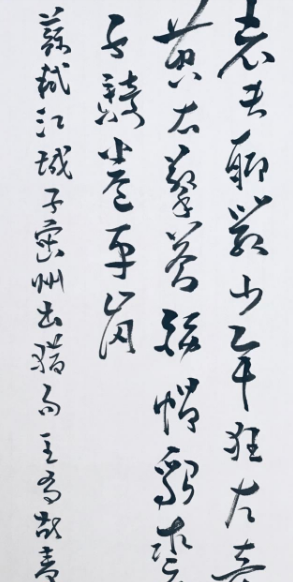 老夫聊發少年狂左牽
黃右擎蒼錦帽貂裘
千騎卷平岡
蘇軾江城子密州出獵句